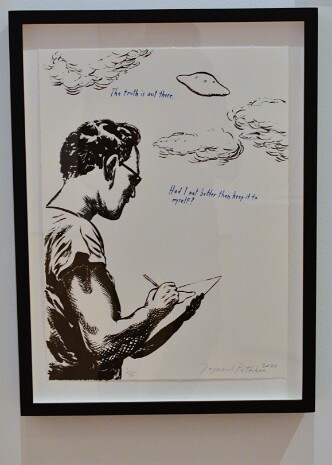 The truth is out there.
Had I not better then keep it to
myself?
Raymond Pettibon